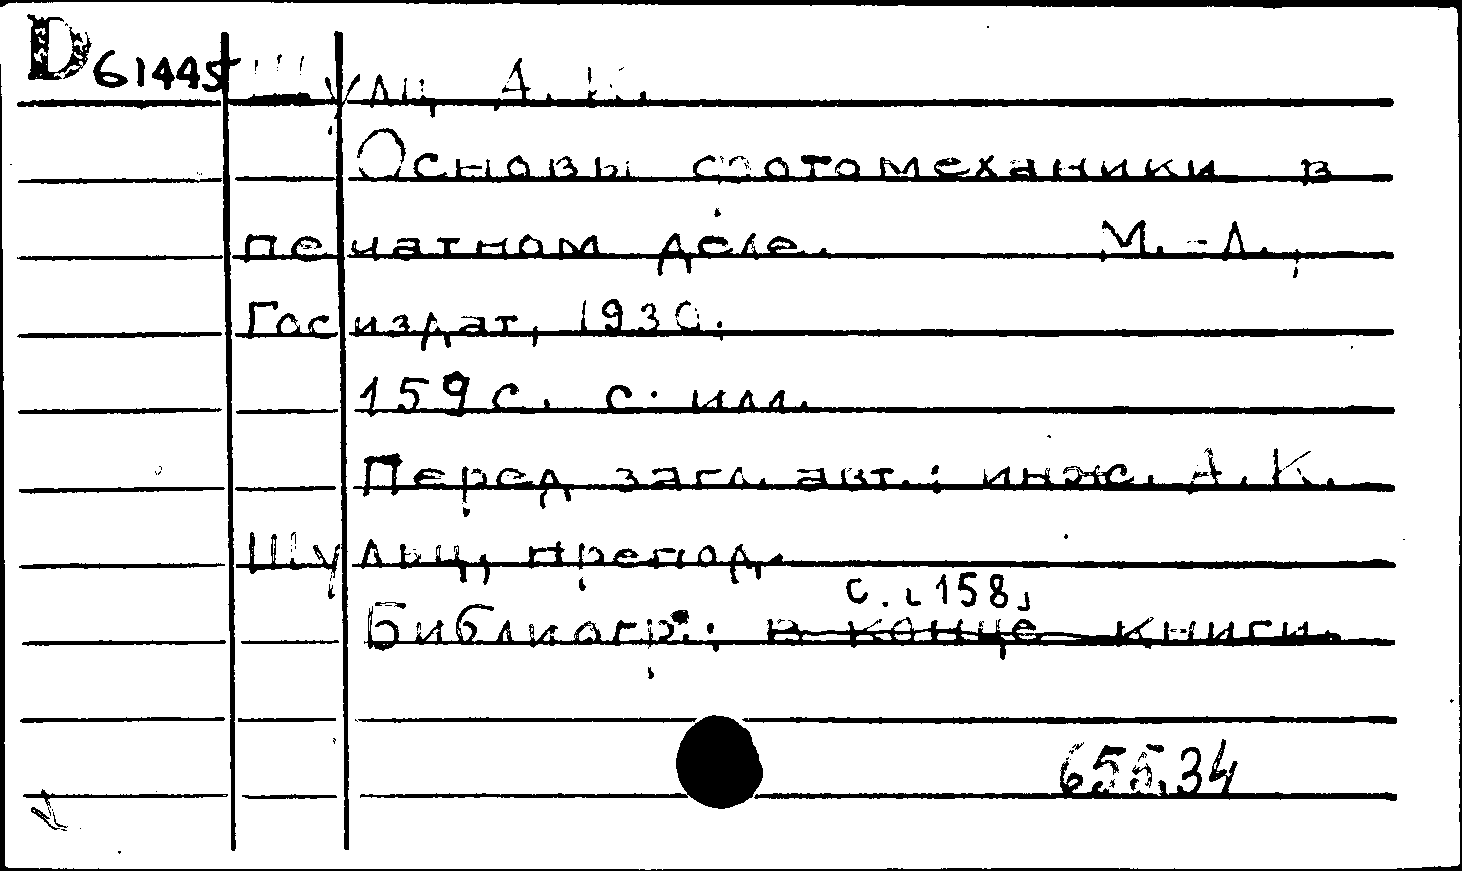 D 61445 Шулц А. К.
Основы фотомеханики в
печатном деле. М.-Л.,
Госиздат, 1930.
159 с. с. илл.
Перед загл. авт.: инж. А. К.
Шульц, препод.
с. ˪158˩
Библиогр.: в конце книги.
655.34